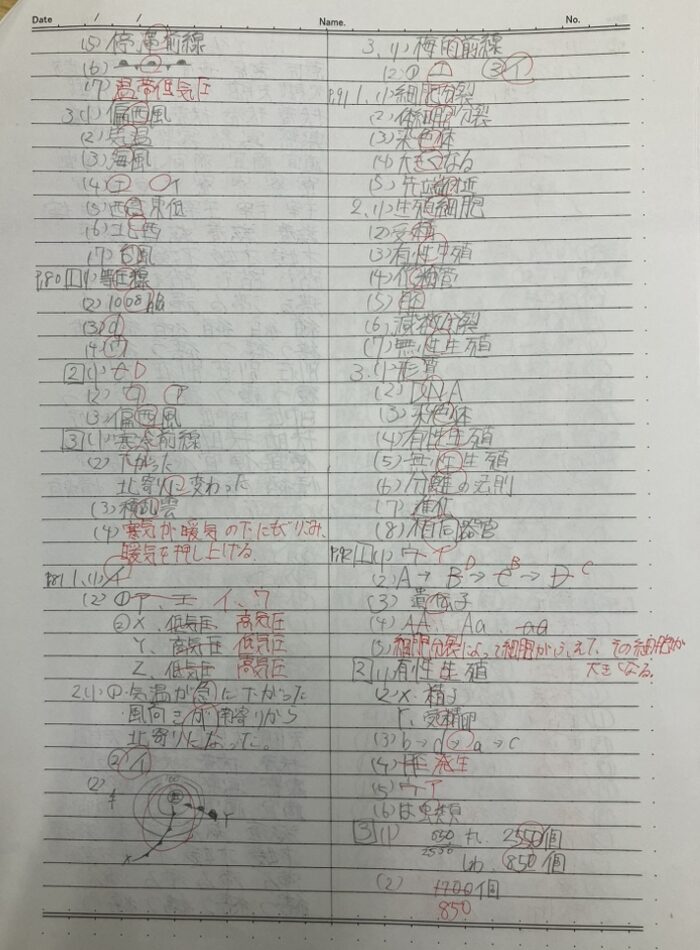 Date / / Name. No.
(5) 停滞前線
(6)
(7) 温帯低気圧
3(1) 偏西風
(2) 気温
(3) 海風
(4) エ イ
(5) 西高東低
(6) 北西
(7) 台風
P.80 1 (1) 等圧線
(2) 1008 hPa
(3) d
(4) ウ
2 (1) D
(2)
(3) 偏西風
3 (1) 寒冷前線
(2) 下がった
北寄りに変わった
(3) 積乱雲
(4) 寒気が暖気の下にもぐりこみ、
暖気を押し上げる。
P.81 1、(1) イ
(2) ① ア、エ イ、ウ
② X、低気圧 高気圧
Y、高気圧 低気圧
Z、低気圧 高気圧
2.(1) ① ・気温が急に下がった
・風向きが南寄りから
北寄りになった。
② イ
(2) キ
X Y
3、(1) 梅雨前線
(2) ① エ ② イ
P.91 1、(1) 細胞分裂
(2) 体細胞分裂
(3) 染色体
(4) 大きくなる
(5) 先端付近
2、(1) 生殖細胞
(2) 受精
(3) 有性生殖
(4) 花粉管
(5) 胚
(6) 減数分裂
(7) 無性生殖
3.(1) 形質
(2) DNA
(3) 染色体
(4) 有性生殖
(5) 無性生殖
(6) 分離の法則
(7) 進化
(8) 相同器官
P.92 1 (1) ウ イ
(2) A → B D → C B → D C
(3) 遺伝子
(4) AA、Aa、aa
(5) 細胞分裂によって細胞がふえて、その細胞が
大きくなる。
2 (1) 有性生殖
(2) X、精子
Y、受精卵
(3) b → d → a → c
(4) 発生
(5) ウ ア
(6) は虫類
3 (1) 850 丸 2550個
2550 しわ 850個
(2) 1700個
850